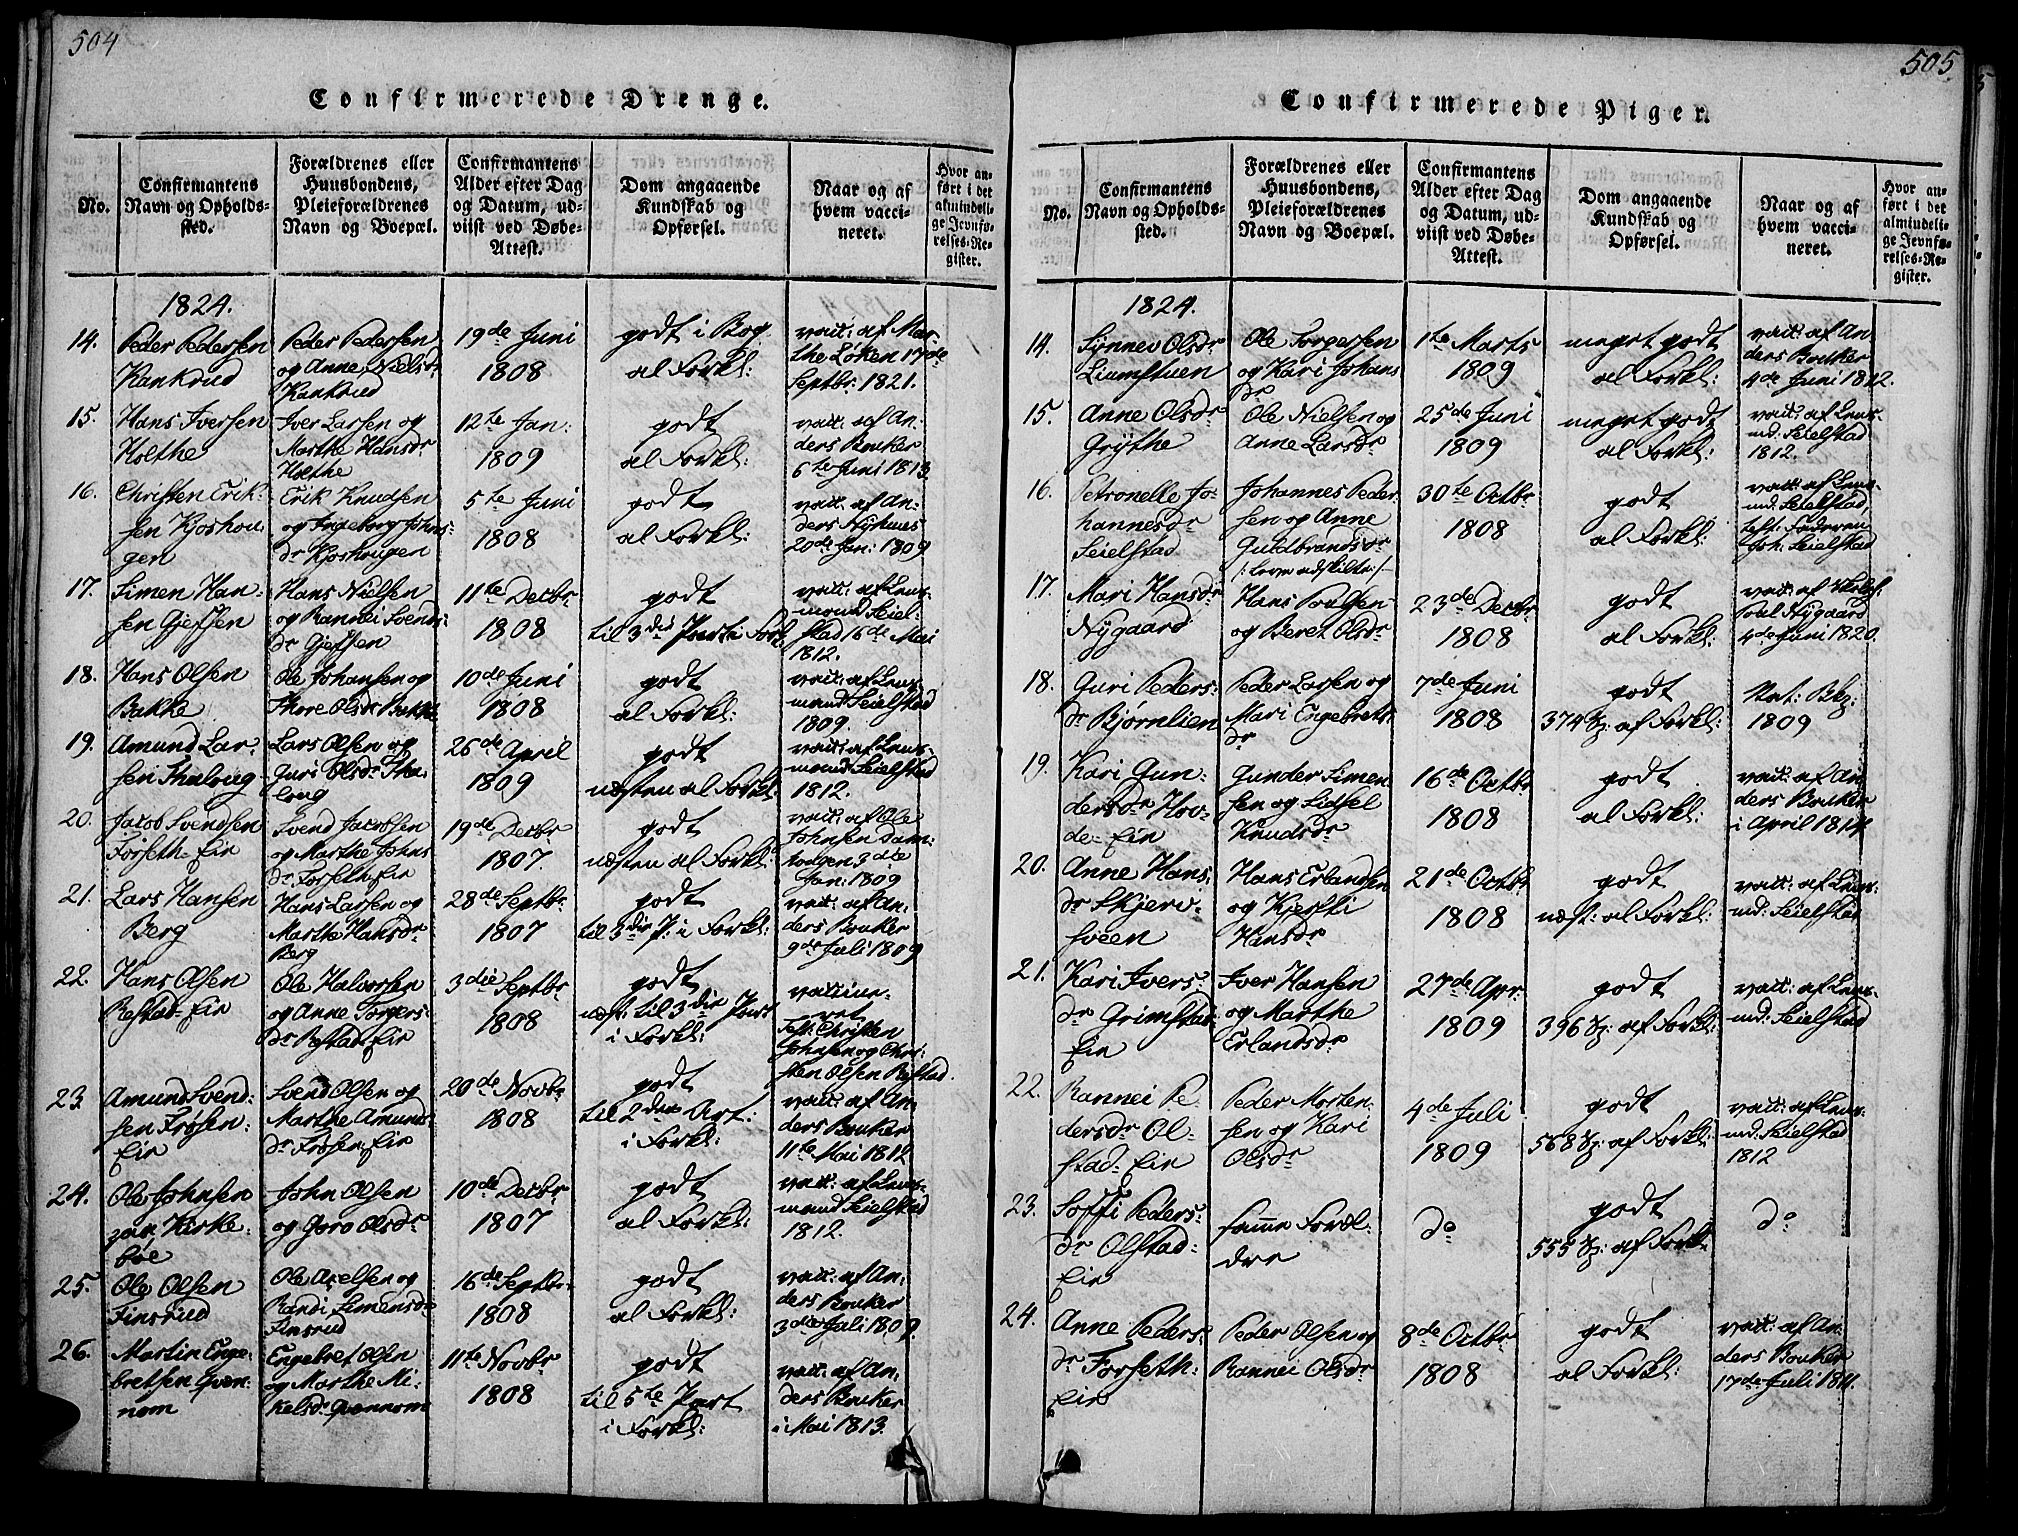 504
Confirmerede Drenge.
No.
Confirmantens
Navn og Opholds-
sted.
Forældrenes eller
Huusbondens,
Pleieforældrenes
Navn og Boepæl.
Confirmantens
Alder efter Dag
og Datum, ud-
viist ved Døbe-
Attest.
Dom angaaende
Kundskab og
Opførsel.
Naar og af
hvem vacci-
neret.
Hvor an-
ført i det
almindeli-
ge Jevnfø-
relses-Re-
gister.
1824.
14.
Peder Pedersen
Kankrud
Peder Pedersen
og Anne Nielsdr
Kankrud
19de Juni
1808
godt i Bog
al Forkl:
vacc: af Mar-
the Løken 17de
Septbr: 1821.
15.
Hans Iversen
Holthe
Iver Larsen og
Marthe Hansdr
Holthe
12te Jan:
1809
godt
al Forkl:
vacc: af An-
ders Bouker
6te Juni 1813
16.
Christen Erik-
sen Kjoshou-
gen
Erik Knudsen
og Ingeborg Johns-
dr Kjoshougen
5te Juni
1808
godt
al Forkl:
vacc: af An-
ders Nyhuus
20de Jan: 1809
17.
Simen Han-
sen Gjefsen
Hans Nielsen
og Rannei Svends-
dr Gjefsen
11te Decbr
1808
godt
til 3die Part i Fork.
vacc: af Lens-
mand Seiel-
stad 16de Mai
1812.
18.
Hans Olsen
Bakke
Ole Johansen og
Thore Olsdr Bakke
10de Juni
1808
godt
al Forkl:
vacc: af Lens-
mand Seielstad
1809.
19.
Amund Lar-
sen Skaloug
Lars Olsen og
Guri Olsdr Ska-
loug
26de April
1809
godt
næsten al Forkl:
vacc: af Lens-
mand Seielstad
1812.
20.
Jacob Svendsen
Forseth-Eie
Svend Jacobsen
og Marthe Johns
dr Forseth-Eie
19de Decbr
1807.
godt
næsten al Forkl:
vacc: af Ole
Johnsen Dom-
hougen 3die
Jan: 1809
21.
Lars Hansen
Berg
Hans Larsen og
Marthe Hansdr
Berg
28de Septbr
1807
godt
til 3die P: i Forkl:
vacc: af An-
ders Bouker
9de Juli 1809
22.
Hans Olsen
Refstad-Eie
Ole Halvorsen
og Anne Torgers-
dr Refstad-Eie
3die Septbr
1808
godt
næst: til 3die Part
i Forkl:
vaccine-
ret
Test: Christen
Johnsen og Chri-
sten Olsen Refstad.
23.
Amund Svend-
sen Frøsen-
Eie
Svend Olsen og
Marthe Amunds-
dr Frøsen-Eie
20de Novbr
1808
godt
til 2den Art:
i Forkl:
vacc: af An-
ders Bouker
11te Mai 1812
24.
Ole Johnsen
paa Kirke-
bøe
John Olsen
og Goro Olsdr
10de Decbr
1807
godt
al Forkl:
vacc: af Lens-
mand Seielstad
1812.
25.
Ole Olsen
Finsrud
Ole Axelsen og
Randi Simensdr
Finsrud
16de Septbr
1808
godt
al Forkl:
vacc: af An-
ders Bouker
3die Juli 1809.
26.
Martin Enge-
bretsen Qven-
nom
Engebret Olsen
og Marthe Mi-
kelsdr Qvennom
11te Novbr
1808
godt
til 5te Part
i Forkl:
vacc: af An-
ders Bouker
i Mai 1813.
505
Confirmerede Piger.
No.
Confirmantens
Navn og Opholds-
sted.
Forældrenes eller
Huusbondens,
Pleieforældrenes
Navn og Boepæl.
Confirmantens
Alder efter Dag
og Datum, ud-
viist ved Døbe-
Attest.
Dom angaaende
Kundskab og
Opførsel.
Naar og af
hvem vacci-
neret.
Hvor an-
ført i det
almindeli-
ge Jevnfø-
relses-Re-
gister.
1824.
14.
Synnev Olsdr
Liumstuen
Ole Torgersen
og Kari Johans
dr
1te Marts
1809
meget godt
al Forkl:
vacc: af An-
ders Bouker
4de Juni 1812.
15.
Anne Olsdr
Grythe
Ole Nielsen og
Anne Larsdr
25de Juni
1809
meget godt
al Forkl:
vacc: af Lens-
md: Seielstad
1812.
16.
Petronelle Jo-
hannesdr
Seielstad
Johannes Peder-
sen og Anne
Guldbrandsdr
/: leve adskilte :/
30te Octbr
1808
godt
al Forkl:
vacc: af Lens-
md: Seielstad,
test: Faderen
Joh: Seielstad
17.
Mari Hansdr
Nygaard
Hans Poulsen
og Beret Olsdr
23de Decbr
1808
godt
al Forkl:
Poul Nygaard
4de Juni 1820.
18.
Guri Peders-
dr Bjørnlien
Peder Larsen og
Mari Engebrets
dr
7de Juni
1808
godt
374 Sp: af Forkl:
Nat: Bkp:
1809
19.
Kari Gun-
dersdr Hov-
de-Eie
Gunder Simen-
sen og Sidsel
Knudsdr
16de Octbr
1808
godt
al Forkl:
vacc: af An-
ders Bouker
i April 1814.
20.
Anne Hans-
dr Skjerv-
sveen
Hans Erlandsen
og Kjersti
Hansdr
21de Octbr
1808
godt
næst: al Forkl:
vacc: af Lens-
md: Seielstad
21.
Kari Ivers-
dr Grimstad-
Eie
Iver Hansen
og Marthe
Erlandsdr
27de Apr:
1809
godt
396 Sp: af Forkl:
vacc: af Lens-
md: Seielstad
22.
Rannei Pe-
dersdr Ol-
stad-Eie
Peder Morten-
sen og Kari
Olsdr
4de Juli
1809
godt
568 Sp: af Forkl:
vacc: af Lens-
md: Seielstad
1812
23.
Soffi Peders-
dr Olstad-
Eie
samme Foræl-
dre
do
godt
555 Sp: af Forkl:
do
24.
Anne Peders-
dr Forseth-
Eie
Peder Olsen og
Rannei Olsdr
8de Octbr
1808
godt
al Forkl:
vacc: af An-
ders Bouker
17de Juli 1811.